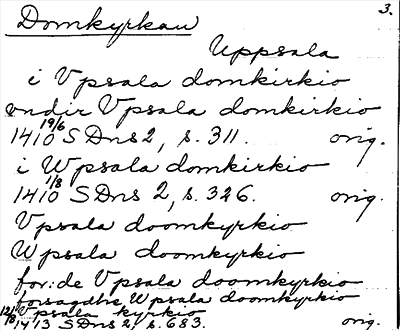 3.
Domkyrkan
Uppsala
i Vpsala domkirkio
vndir Vpsala domkirkio
1410 19/6 SDns 2, s. 311. orig.
i Wpsala domkirkio
1410 1/8 SDns 2, s. 326. orig.
Vpsala doomkyrkio
Wpsala doomkyrkio
for:de Vpsala doomkyrkio
forsagdhe Wpsala doomkyrkio
Vpsala kyrkio
1413 12/8 SDns 2, s. 683. orig.